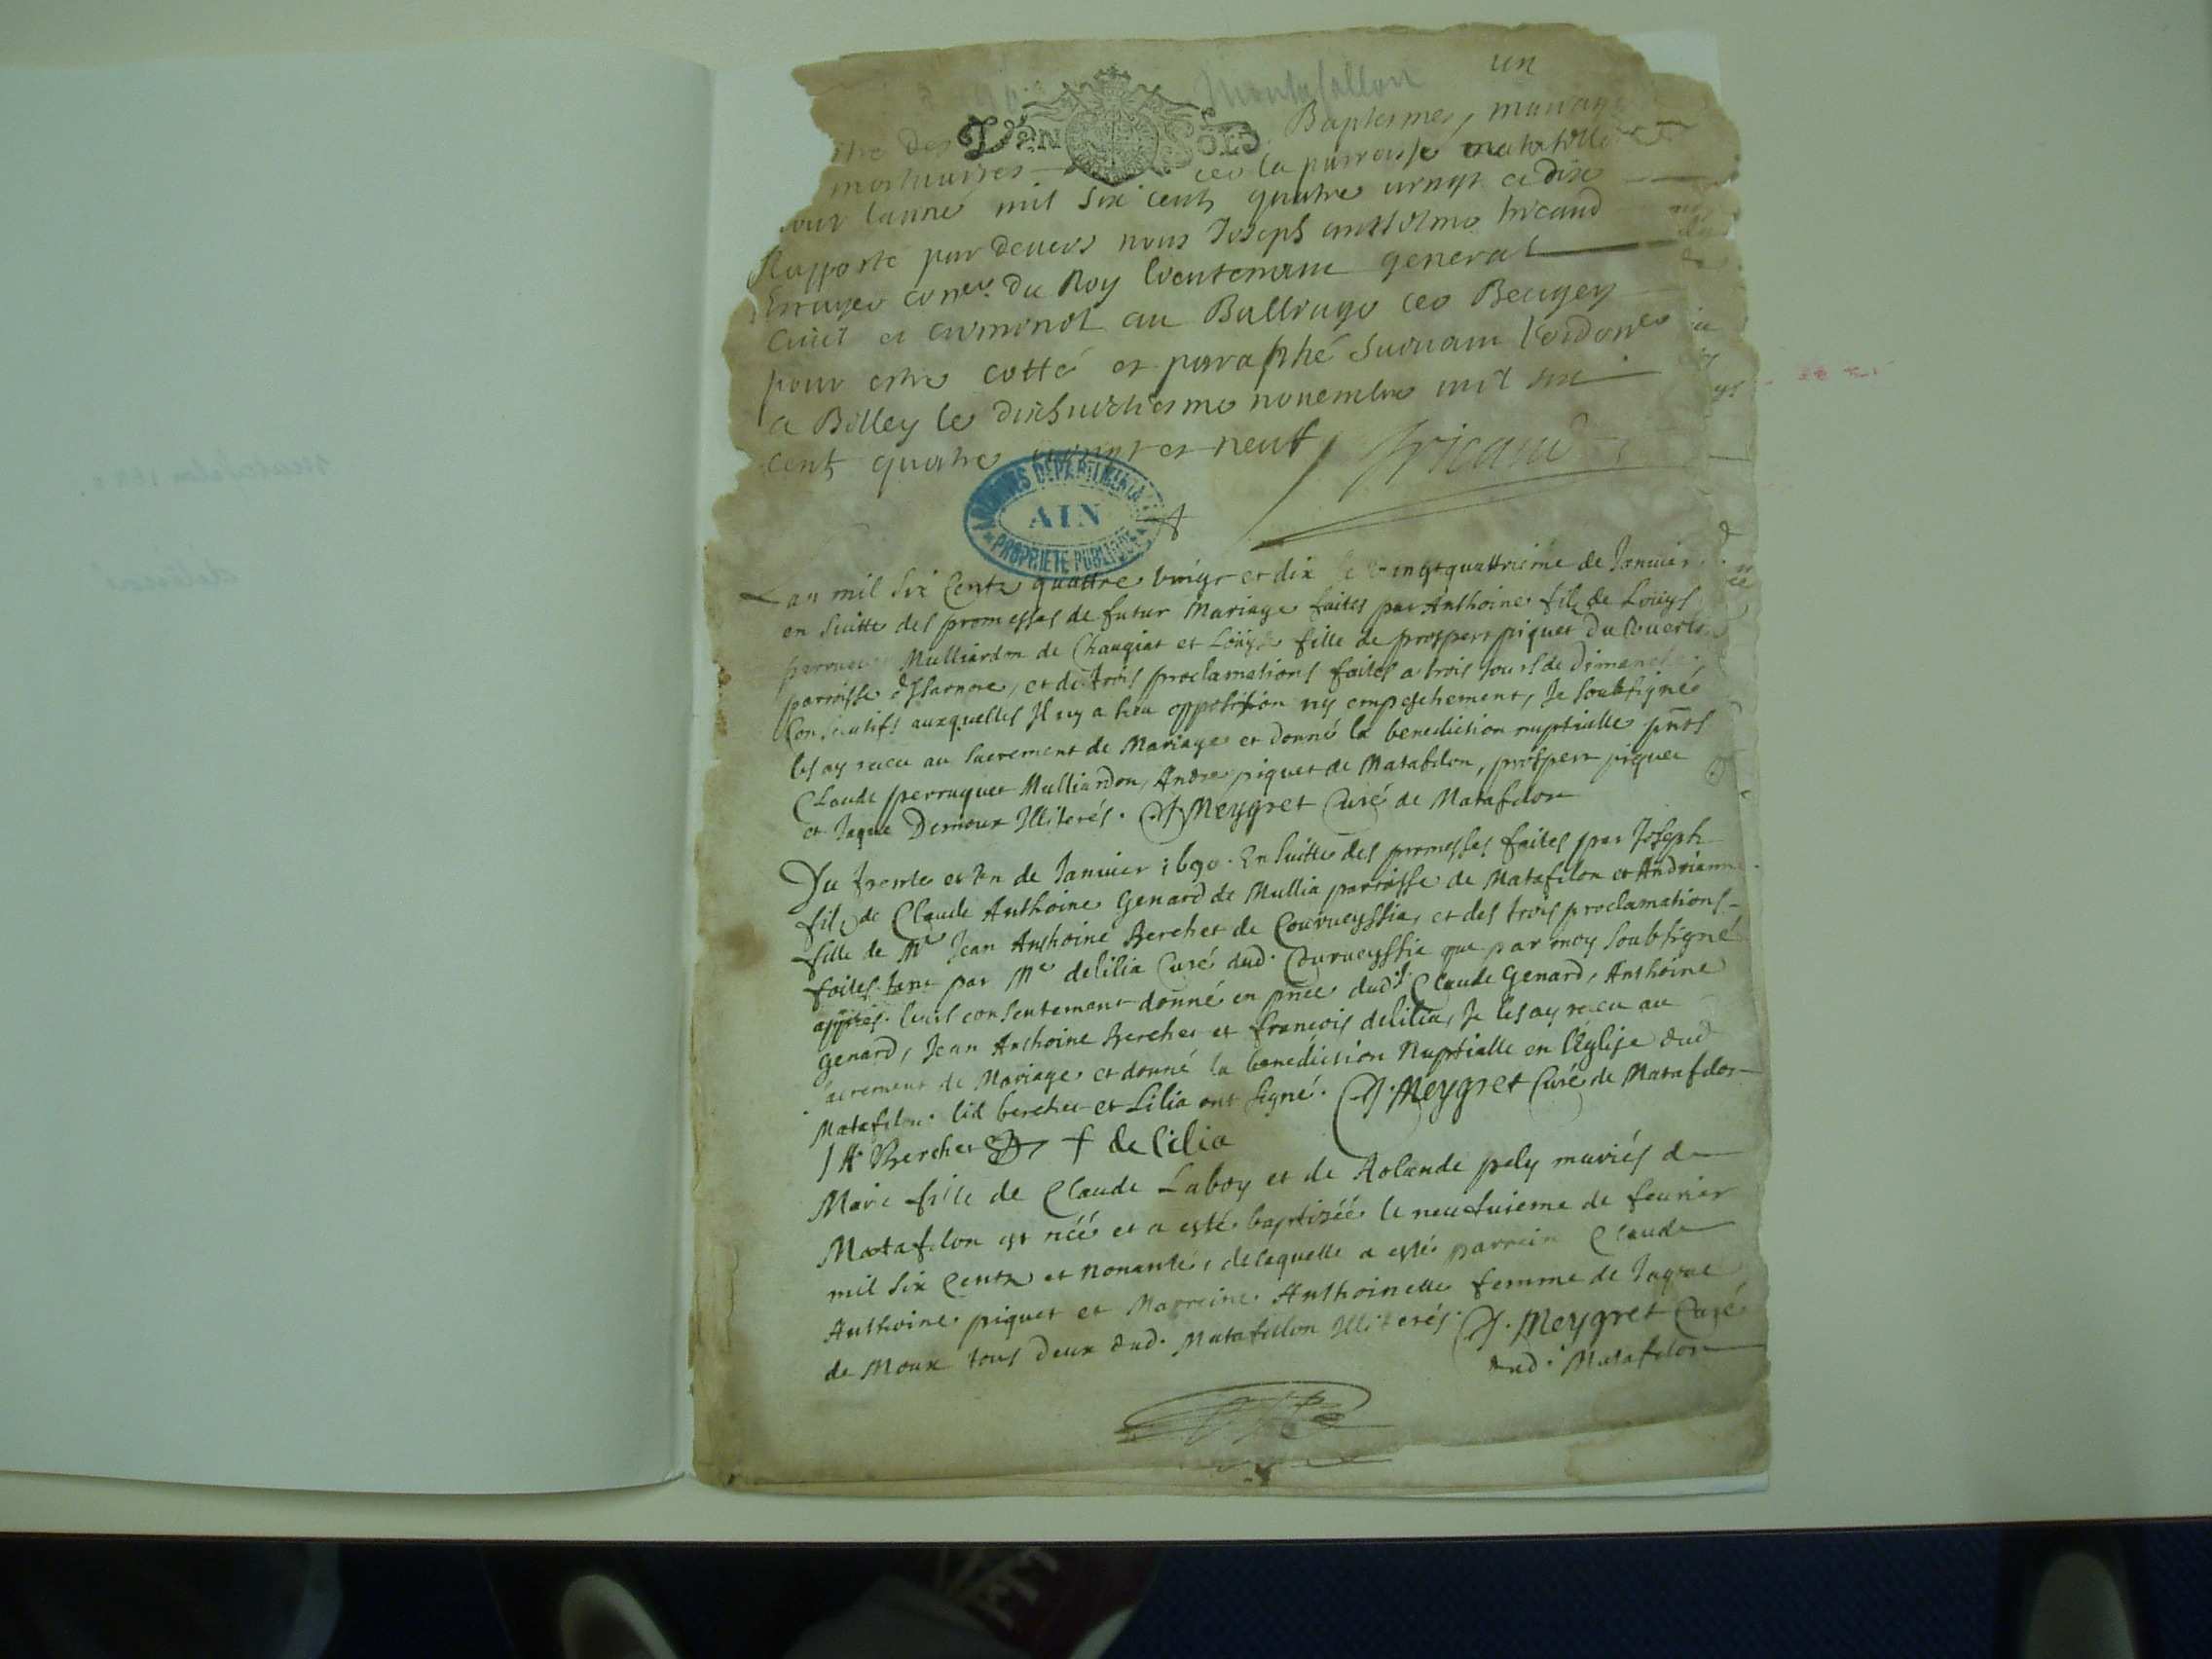 un
Montafallon
Baptesmes, mariages
stre des VIN SOLS
mortuaires de la parroisse matafillon
pour lanné mil six cents quatre vingt et dix
Rapporté par devers nous Joseph anthelme tricaud
Escuyer coner. du Roy lieutenant general
Civil et criminel au Balliage de Beugey
pour estre cotté et paraphé Suivant l'ordonce
a Belley le dixhuictiesme novembre mil six
cent quatre vingt et neuf Tricaud
ARCHIVES DEPARTEMENTALES
AIN
PROPRIETE PUBLIQUE
Lan mil six Centz quattre vingt et dix le vingtquattrieme de Janvier
en suitte des promesses de futur Mariage faites par Anthoine filz de Loüys
perruquet Mulliardon de Chaugiat et Loüyse fille de prosper piquet du Couvert
parroisse d'Isarnore, et de trois proclamations faites a trois Jours de Dimanche
Consecutifs auxquelles Il ny a heu opposition ny empeschement, Je soubsigné
les ay receu au sacrement de Mariage et donné la benediction nuptialle pnts
Claude perruquet Mulliardon, Andre piquet de Matafelon, prosper piquet
et Jaque Demoux Illiterés. A. Meygret Curé de Matafelon
Du trente et Un de Janvier 1690. En suitte des promesses faites par Joseph
filz de Claude Anthoine Genard de Mullia parroisse de Matafelon et Andrianne
fille de Mre Jean Anthoine Berchet de Courveyssia, et des trois proclamations
faites tant par Mre delilia Curé dud. Courveyssia que par moy soubsigné
appres leurs consentement donné en pnce dudt. Claude Genard, Anthoine
genard, Jean Anthoine Berchet et françois delilia, Je les ay receu au
sacrement de Mariage et donné la benediction Nuptialle en l'église dud
Matafelon. lid berchet et Lilia ont signé. A. Meygret Curé de Matafelon
J A Berchet f de lilia
Marie fille de Claude Laboy et de Rolande pely mariés de
Matafelon est néé et a esté baptizéé le neufvieme de fevrier
mil six Centz et Nonante, de laquelle a esté parrein Claude
Anthoine piquet et Marreine Anthoinette femme de Jaque
de Moux tous deux dud. Matafelon Illiterés. A. Meygret Curé
dud. Matafelon